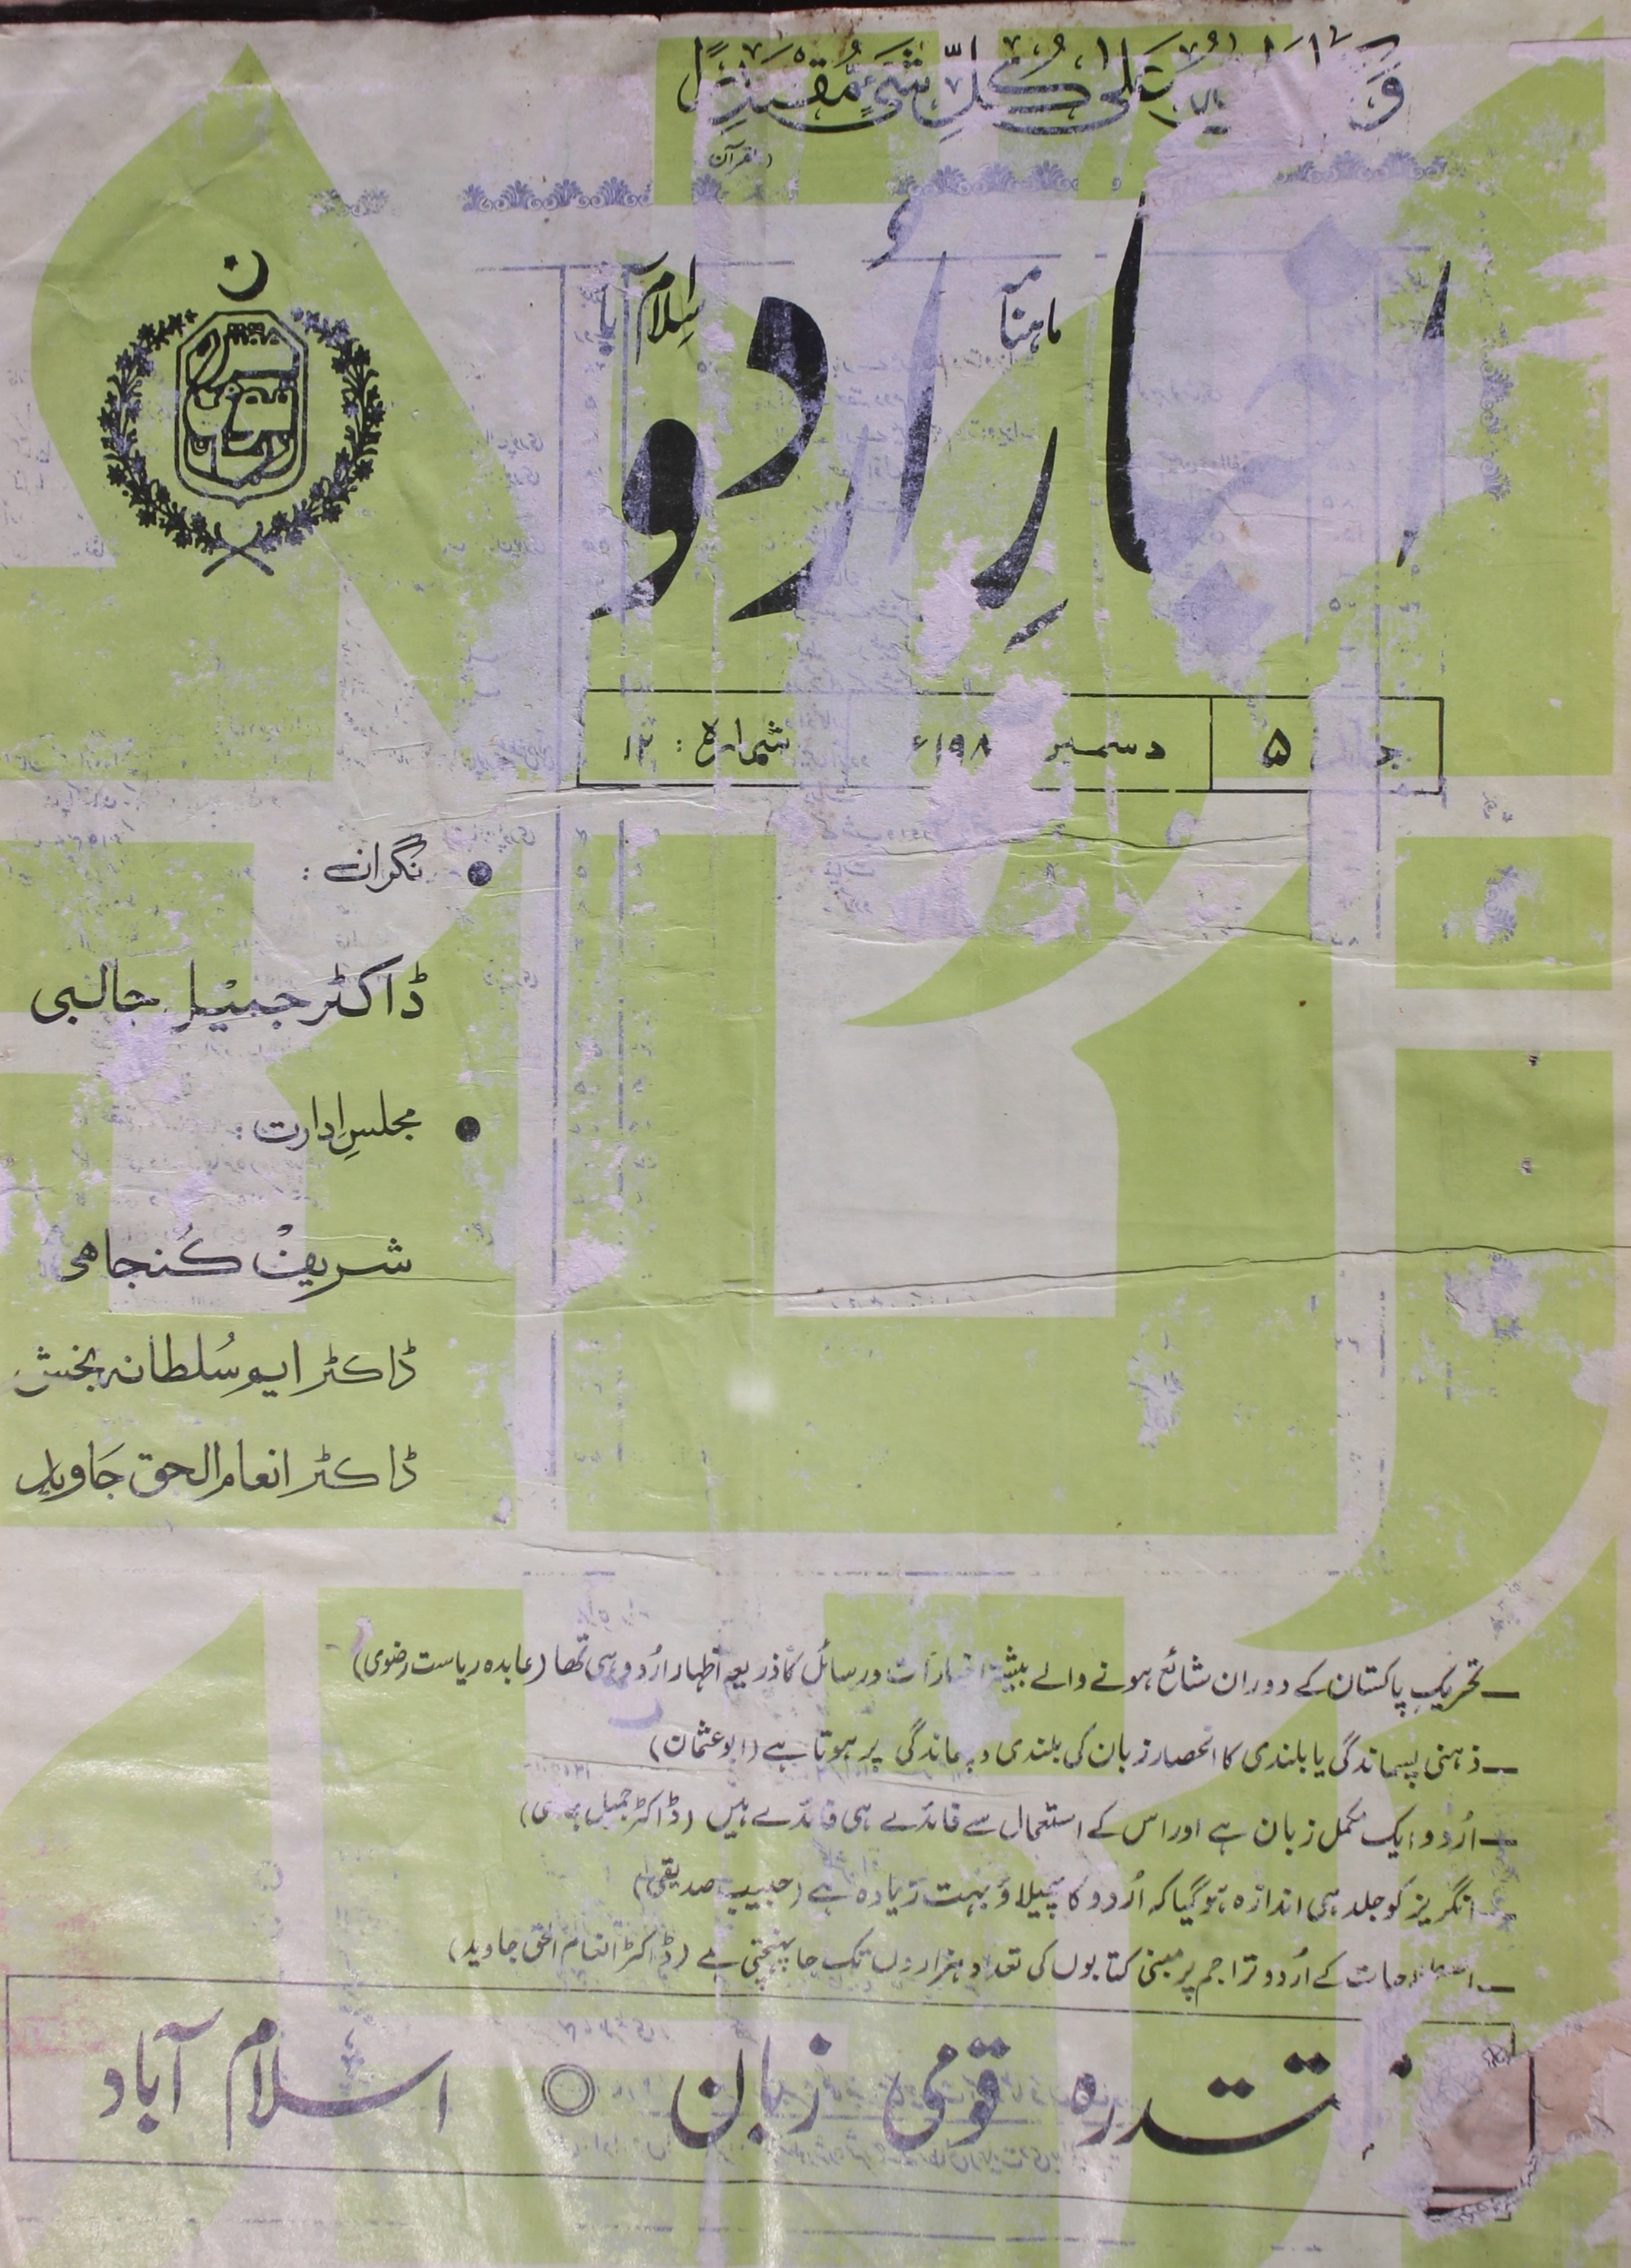 عَلیٰ کُلِّ شَیْءٍ مُّقْتَدِرًا
(القرآن)
ماہنامہ
اخبارِ اُردو
اسلام آباد
جلد ۵ دسمبر ۱۹۸ء شمارہ : ۱۲
نگران :
ڈاکٹر جمیل جالبی
مجلسِ ادارت :
شریف کُنجاہی
ڈاکٹر ایم سُلطانہ بخش
ڈاکٹر انعام الحق جاوید
ـ تحریکِ پاکستان کے دوران شائع ہونے والے بیشتر اخبارات ورسائل کا ذریعہ اظہار اُردو ہی تھا (عابدہ ریاست رضوی)
ـ ذہنی پسماندگی یا بلندی کا انحصار زبان کی بلندی و پسماندگی پر ہوتا ہے (ابوعثمان)
ـ اُردو ایک مکمل زبان ہے اور اس کے استعمال سے فائدے ہی فائدے ہیں (ڈاکٹر جمیل جالبی)
ـ انگریز کو جلد ہی اندازہ ہوگیا کہ اُردو کا پھیلاؤ بہت زیادہ ہے (حبیب صدیقی)
ـ اصطلاحات کے اُردو تراجم پر مبنی کتابوں کی تعداد ہزاروں تک جا پہنچتی ہے (ڈاکٹر انعام الحق جاوید)
مقتدرہ قومی زبان ◎ اسلام آباد